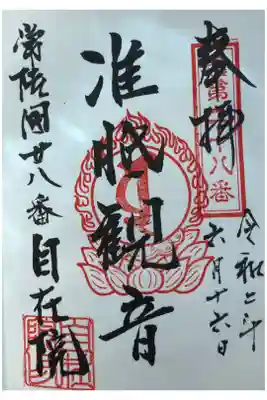 奉拝
令和二年
六月十六日
准胝観音
常陸国廿八番自在院